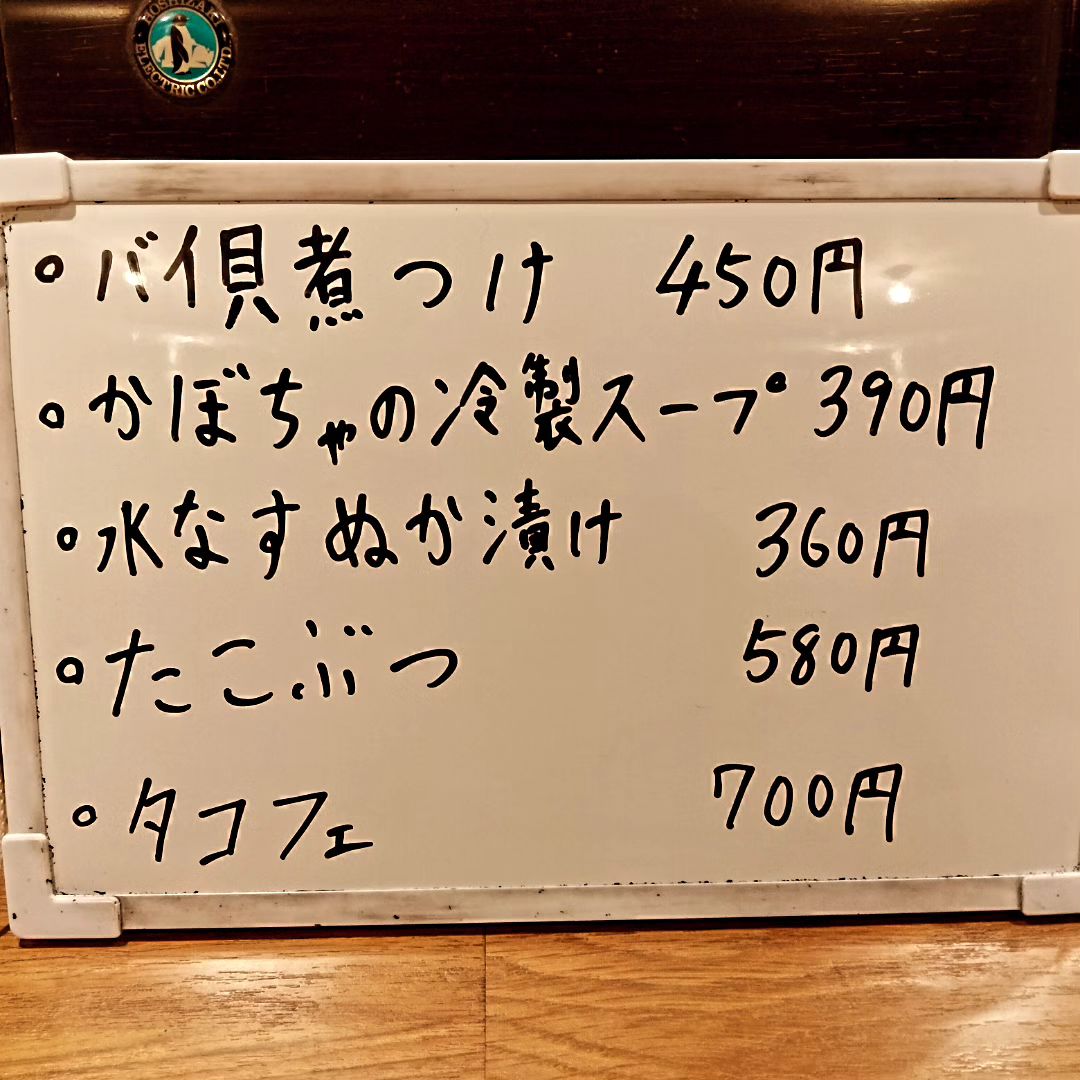 HOSHIZAKI
ELECTRIC CO., LTD.
。バイ貝煮つけ 450円
。かぼちゃの冷製スープ 390円
。水なすぬか漬け 360円
。たこぶつ 580円
。タコフェ 700円